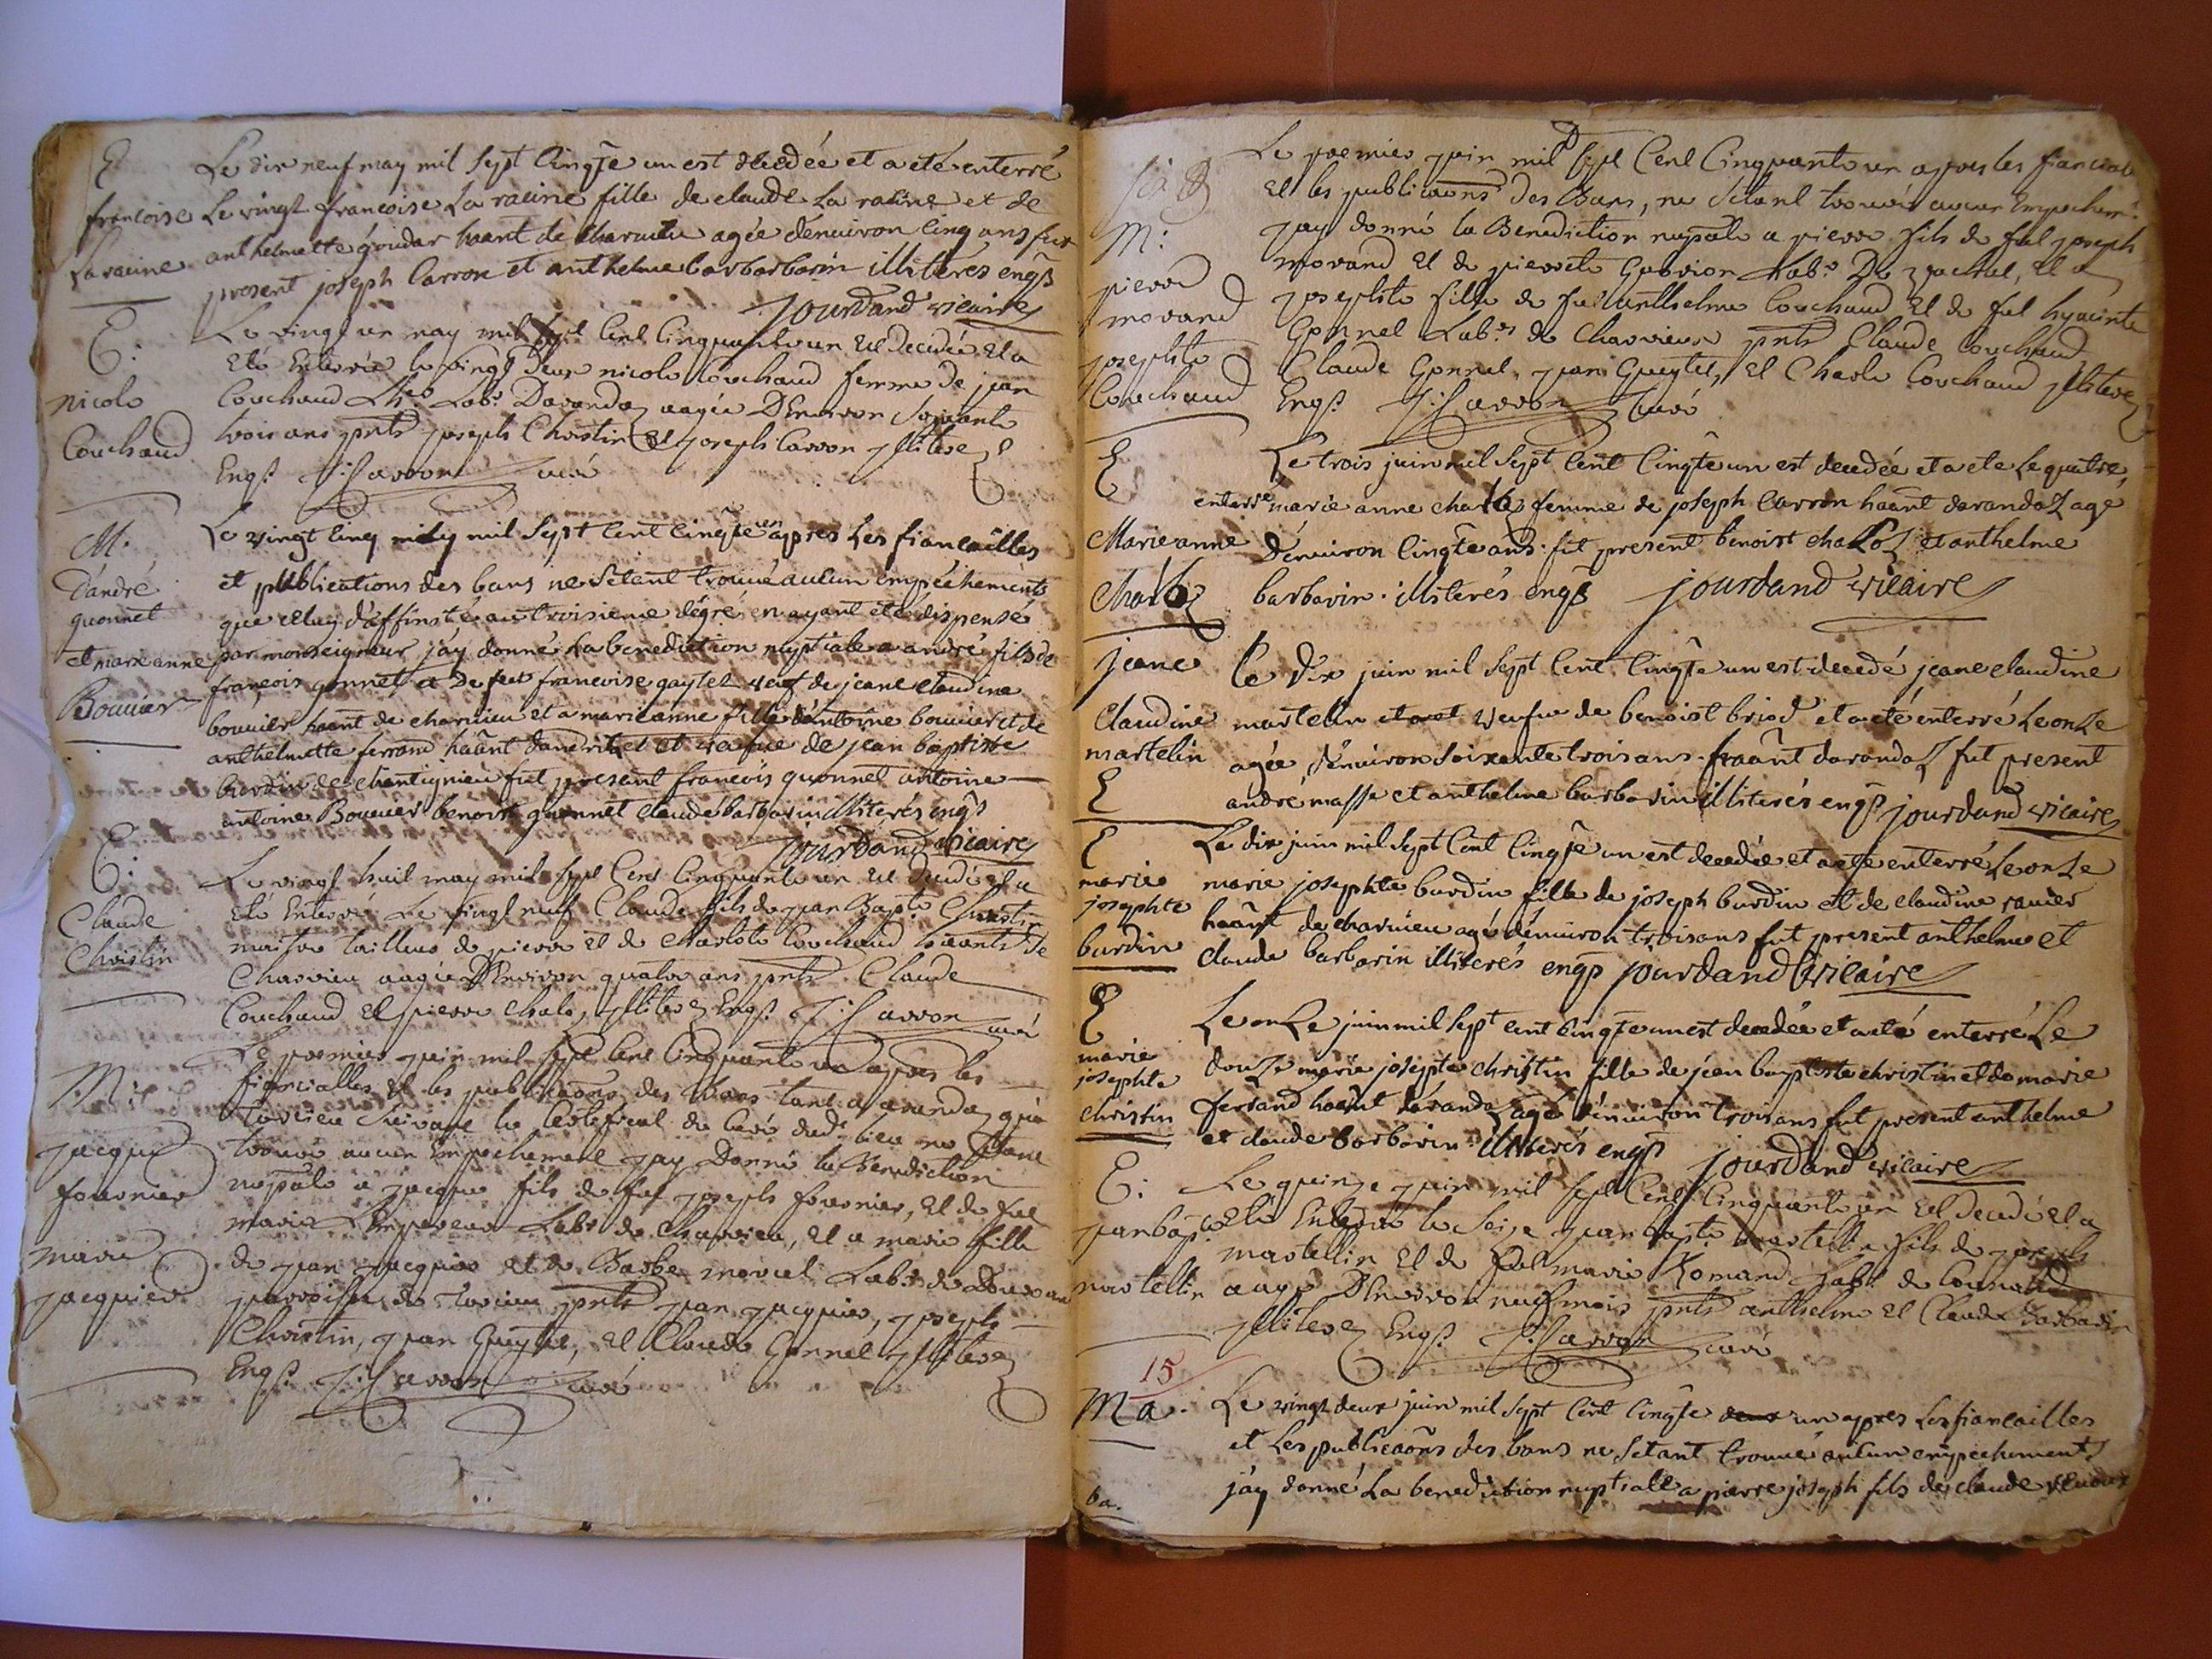 E
françoise
La racine
Le dix neuf may mil sept Cinqte un est decedée et a eté enterré
Le vingt francoise La racine fille de claude La racine et de
anthelmette goudar haant de charuieu agée dénuiron Cinq ans fut
present joseph Carron et anthelme barbarin illiterés engs
jourdand vicaire
E:
nicole
Couchaud
Le vingt un may mil sept Cent Cinquante un Est Decedée Et a
Eté Enterrée le vingt deux nicole Couchaud femme de jean
Couchaud Labr Darandaz aagée DEnviron Soixante
trois ans pnts joseph Christin Et joseph Carron jlliterez
Engs J: Carron curé
M.
d'andré
guonnet
et marie anne
Bouuier
Le vingt Cinq may mil sept Cent Cinqte un apres Les fiancailles
et publications des bans ne sétant trouué aucun empéchements
que celuy d'affinité au troisieme dégré en ayant eté dispensé
par monseigneur jáy donné La benediction nuptiale a andré fils de
françois gonnet et De feu francoise gaytet veuf de jeane claudine
bouuier haant de charuieu et a marie anne fille d'antoine bouuier et de
anthelmette ferrand haant dandrit et et veufue de jean baptiste
burdin de chentignieu fut present francois guonnet antoine
antoine Bouuier benoist guonnet claude barbarin illiterés engs
jourdand vicaire
E:
Claude
Christin
Le vingt huit may mil sept Cent Cinquante un Est Decedé Et a
Eté Enterré Le vingt neuf Claude fils de jean Bapte Christin
maitre tailleur de pierre Et de Charlote Couchaud haants de
Charvieu aagée DEnviron quatre ans pnts Claude
Couchaud Et pierre Chalo, jlliterez Engs J: Carron curé
M:
jacque
fournier
marie
jacquier
Le premier juin mil sept Cent Cinquante un apres les
fiancialles Et les publicaõns des Bans tant a arandaz qu'a
torcieu Suivant le Certificat du Curé dudt lieu ne Setant
trouvé aucun Empechement jay Donné la Benediction
nuptale a jacque fils de feu joseph fournier, Et de feue
marie Lempereur Labr de Charvieu, Et a marie fille
de jean jacquier et de Barbe Labrs de
parroisse de torcieu pnts jean jacquier, joseph
Christin, jean Gueytet, Et Claude Gonnet jlliterez
Engs J: Carron curé
M:
pierre
morand
josephte
Couchaud
Le premier juin mil sept Cent Cinquante un apres les fiancialles
Et les publicaõns des Bans, ne Sétant trouvé aucun Empechemt
jay donné la Benediction nuptale a pierre fils de feu joseph
morand Et de pierrete Gabrion Labr De Et a
josephte fille de feu anthelme Couchaud Et de feue hyacinte
Gonnet Labrs de Charvieux pnts Claude Couchaud
Claude Gonnet, jean Gueytet, Et Charle Couchaud jlliterez
Engs J: Carron curé
E
Marie anne
chaloz
Le trois juin mil sept Cent Cinqte un est decedée et a ete Le quatre
enterré marie anne chaloz femme de joseph Carron haant darandaz age
dénuiron Cinqte ans. fut present benoist chaloz et anthelme
barbarin. illiterés engs jourdand vicaire
jeane
Claudine
martelin
E
Ce Dix juin mil sept Cent Cinqte un est decedé jeane claudine
martelin veufue de benoist briod et a eté enterré Le onze
agée dénuiron soixante trois ans. haant darandaz fut present
andré masse et anthelme barbarin illiterés engs jourdand vicaire
E
marie
josephte
burdin
Le dix juin mil sept Cent Cinqte un est decedée et a ete enterré Le onze
marie josephte burdin fille de joseph burdin et de claudine ravier
haant de charuieu agé dénuiron trois ans fut present anthelme et
claude barbarin illiterés engs jourdand vicaire
E
marie
josephte
christin
Le onze juin mil sept cent Cinqte un est decedée et a eté enterré Le
douze marie josepte christin fille de jean baptiste christin et de marie
ferrand haant darandaz agé dénuiron trois ans fut present anthelme
et claude barbarin. illiterés engs jourdand vicaire
E:
jean bapte
martellin
Le quinze juin mil sept Cent Cinquante un Est Decedé Et a
Eté Enterré le Seize jean bapte martellin fils de joseph
martellin Et de feue marie Romand Labr de
aagé DEnviron neuf mois pnts anthelme Et Claude Barbarin
jlliterez Engs J: Carron curé
15
Ma.
Le vingt deux juin mil sept Cent Cinqte deux un apres Les fiancailles
et Les publicaõns des bans ne sétant trouué aucun empechements
jáy donné La benediction nuptialle a pierre joseph fils de claude
ba.